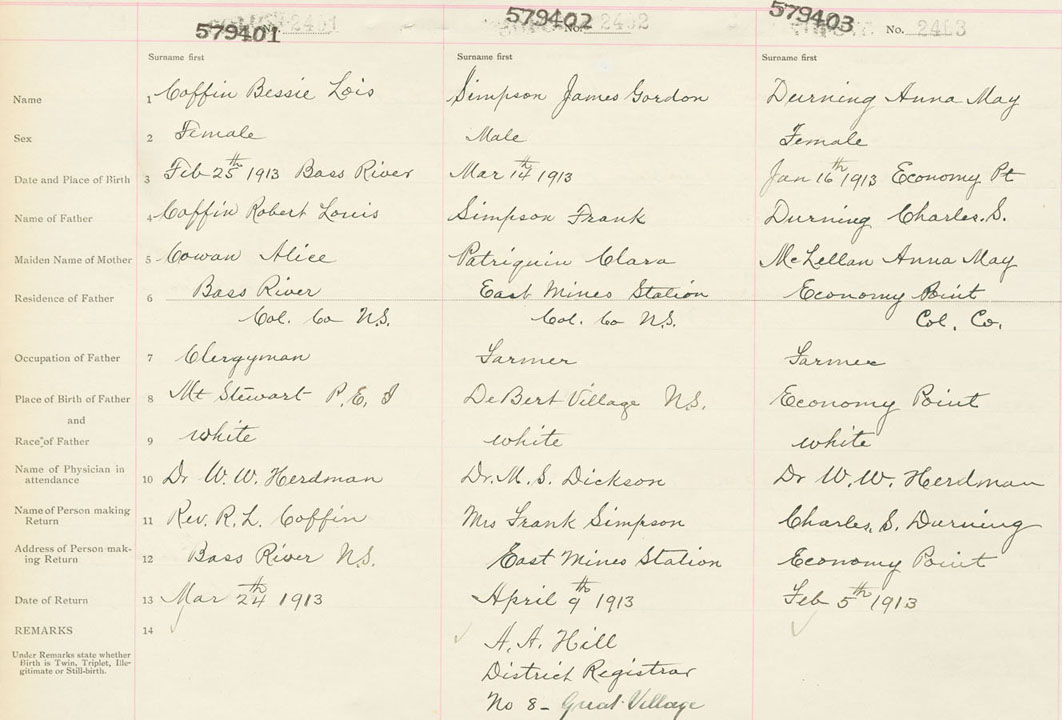 579401 2401
579402 No. 2402
579403 No. 2403
Surname first Surname first Surname first
Name 1 Coffin Bessie Lois Simpson James Gordon Durning Anna May
Sex 2 Female Male Female
Date and Place of Birth 3 Feb 25th 1913 Bass River Mar 14th 1913 Jan 16th 1913 Economy Pt
Name of Father 4 Coffin Robert Louis Simpson Frank Durning Charles. S.
Maiden Name of Mother 5 Cowan Alice Patriquin Clara McLellan Anna May
Residence of Father 6 Bass River East Mines Station Economy Point
Col. Co N.S. Col. Co N.S. Col. Co.
Occupation of Father 7 Clergyman Farmer Farmer
Place of Birth of Father 8 Mt Stewart P. E. I DeBert Village N.S. Economy Point
and
Race of Father 9 white white white
Name of Physician in
attendance 10 Dr W. W. Herdman Dr. M. S. Dickson Dr W. W. Herdman
Name of Person making
Return 11 Rev. R. L. Coffin Mrs Frank Simpson Charles. S. Durning
Address of Person mak-
ing Return 12 Bass River N.S. East Mines Station Economy Point
Date of Return 13 Mar 24th 1913 April 9th 1913 Feb 5th 1913
REMARKS 14 A. A. Hill
Under Remarks state whether
Birth is Twin, Triplet, Ille-
gitimate or Still-birth.
District Registrar
No 8 - Great Village